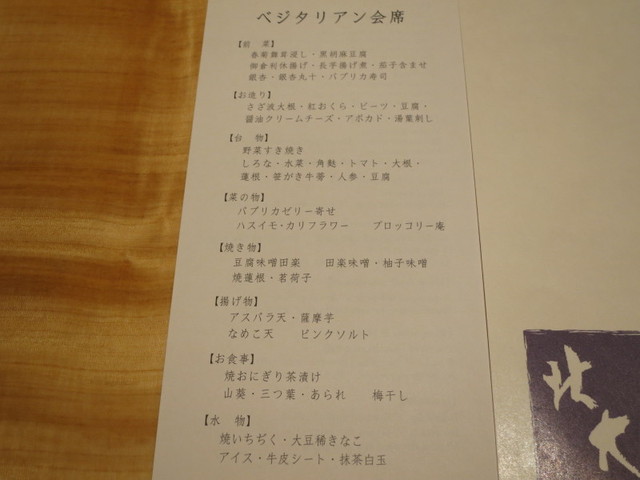 ベジタリアン会席
【前　菜】
春菊舞茸浸し・黒胡麻豆腐
御倉利休揚げ・長芋揚げ煮・茄子含ませ
銀杏・銀杏丸十・パプリカ寿司
【お造り】
さざ波大根・紅おくら・ビーツ・豆腐・
醤油クリームチーズ・アボカド・湯葉刺し
【台　物】
野菜すき焼き
しろな・水菜・角麩・トマト・大根・
蓮根・笹がき牛蒡・人参・豆腐
【菜の物】
パプリカゼリー寄せ
ハスイモ・カリフラワー　ブロッコリー庵
【焼き物】
豆腐味噌田楽　田楽味噌・柚子味噌
焼蓮根・茗荷子
【揚げ物】
アスパラ天・薩摩芋
なめこ天　ピンクソルト
【お食事】
焼おにぎり茶漬け
山葵・三つ葉・あられ　梅干し
【水　物】
焼いちぢく・大豆稀きなこ
アイス・牛皮シート・抹茶白玉
北大